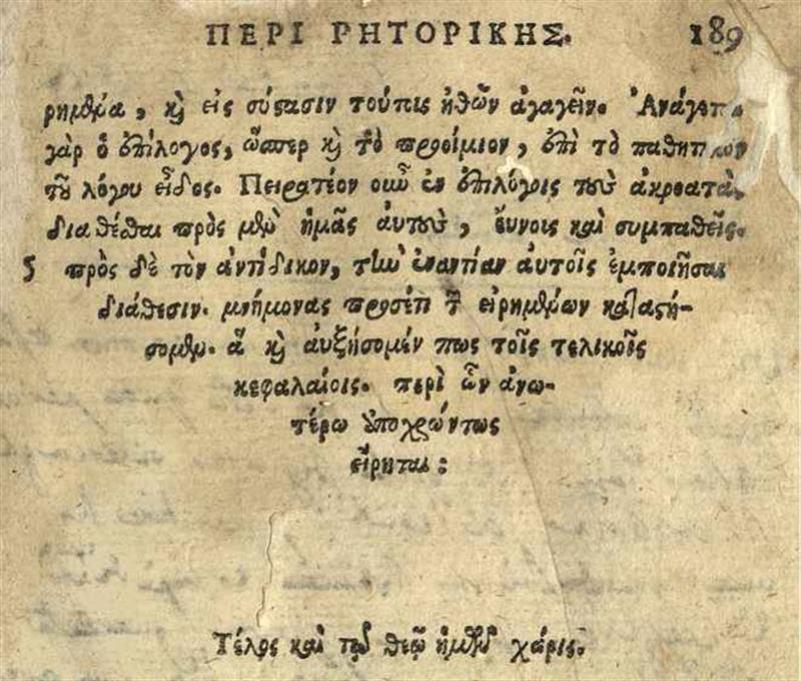 ΠΕΡΙ ΡΗΤΟΡΙΚΗΣ. 189
ρημένα, καὶ εἰς σύστασιν τούπις ἠθῶν ἀγαγεῖν. Ἀνάγεται
γὰρ ὁ ἐπίλογος, ὥσπερ καὶ τὸ προοίμιον, ἐπὶ τὸ παθητικὸν
τοῦ λόγου εἶδος. Πειρατέον οὖν ἐν ἐπιλόγοις τοὺς ἀκροατὰς
διαθέσθαι πρὸς μὲν ἡμᾶς αὐτοὺς, εὔνοις καὶ συμπαθεῖς.
5 πρὸς δὲ τὸν ἀντίδικον, τὴν ἐναντίαν αὐτοῖς ἐμποιῆσαι
διάθεσιν. μνήμονας προσέτι τῶν εἰρημένων καταστή-
σομεν. ἃ καὶ αὐξήσομέν πως τοῖς τελικοῖς
κεφαλαίοις. περὶ ὧν ἀνω-
τέρω ὑποχρώντως
εἴρηται:
Τέλος καὶ τῷ θεῷ ἡμῶν χάρις.